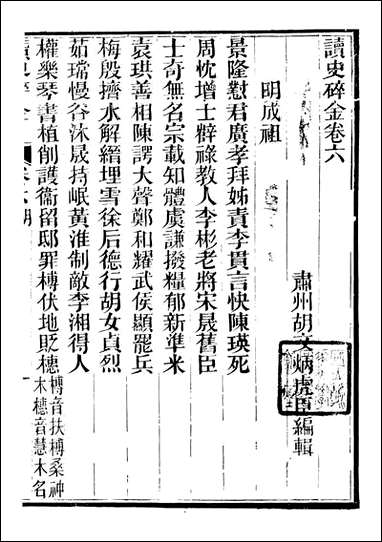 讀史碎金卷六
肅州胡文炳虎臣編輯
明成祖
景隆懟君廣孝拜姊責李貫言快陳瑛死
周忱增士辭祿教人李彬老將宋晟舊臣
士奇無名宗載知體虞謙撥糧郁新準米
袁珙善相陳諤大聲鄭和耀武侯顯罷兵
梅殷擠水解縉埋雪徐后德行胡女貞烈
茹瑺慢谷沐晟持岷黃淮制敵李湘得人
權樂琴書植削護衞留邸罪榑伏地貶橞榑音扶榑桑神木橞音慧木名